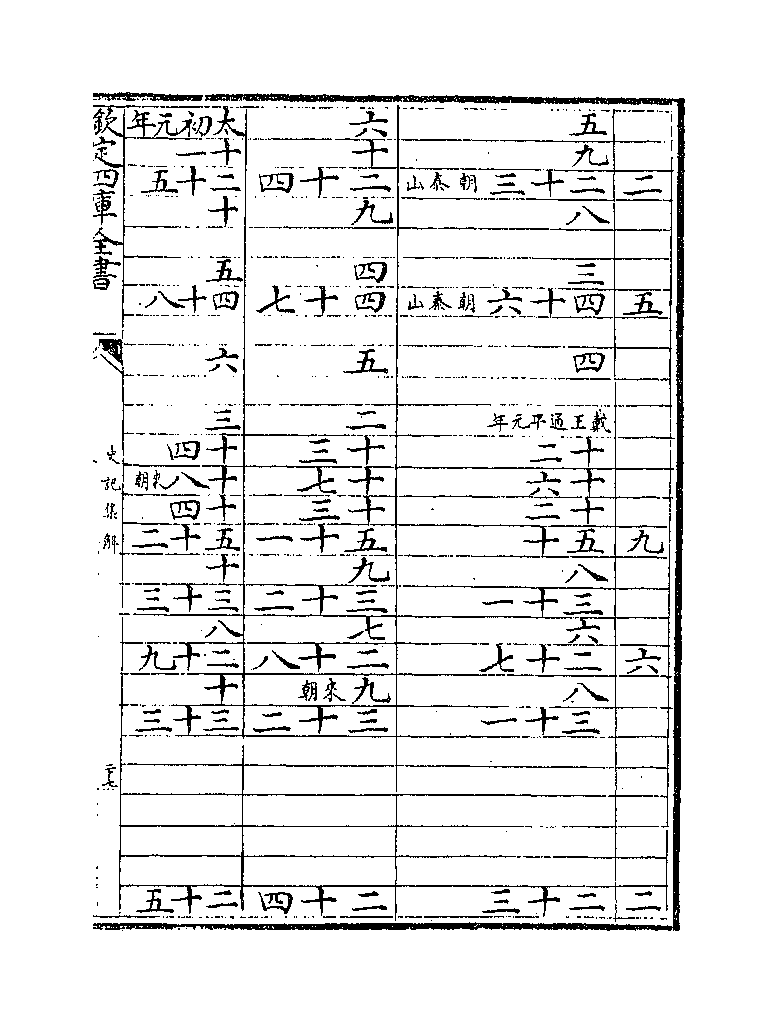 二
五
九
六
二
五
九
二十三朝泰山
八
三
四十六朝泰山
四
戴王通平元年
十二
十六
十二
五十
八
三十一
六
二十七
八
三十一
二十三
六
十
二十四
九
四
四十七
五
二
十三
十七
十三
五十一
九
三十二
七
二十八
九來朝
三十二
二十四
太初元年
十一
二十五
十
五
四十八
六
三
十四
十八來朝
十四
五十二
十
三十三
八
二十九
十
三十三
二十五
欽定四庫全書
史記集解